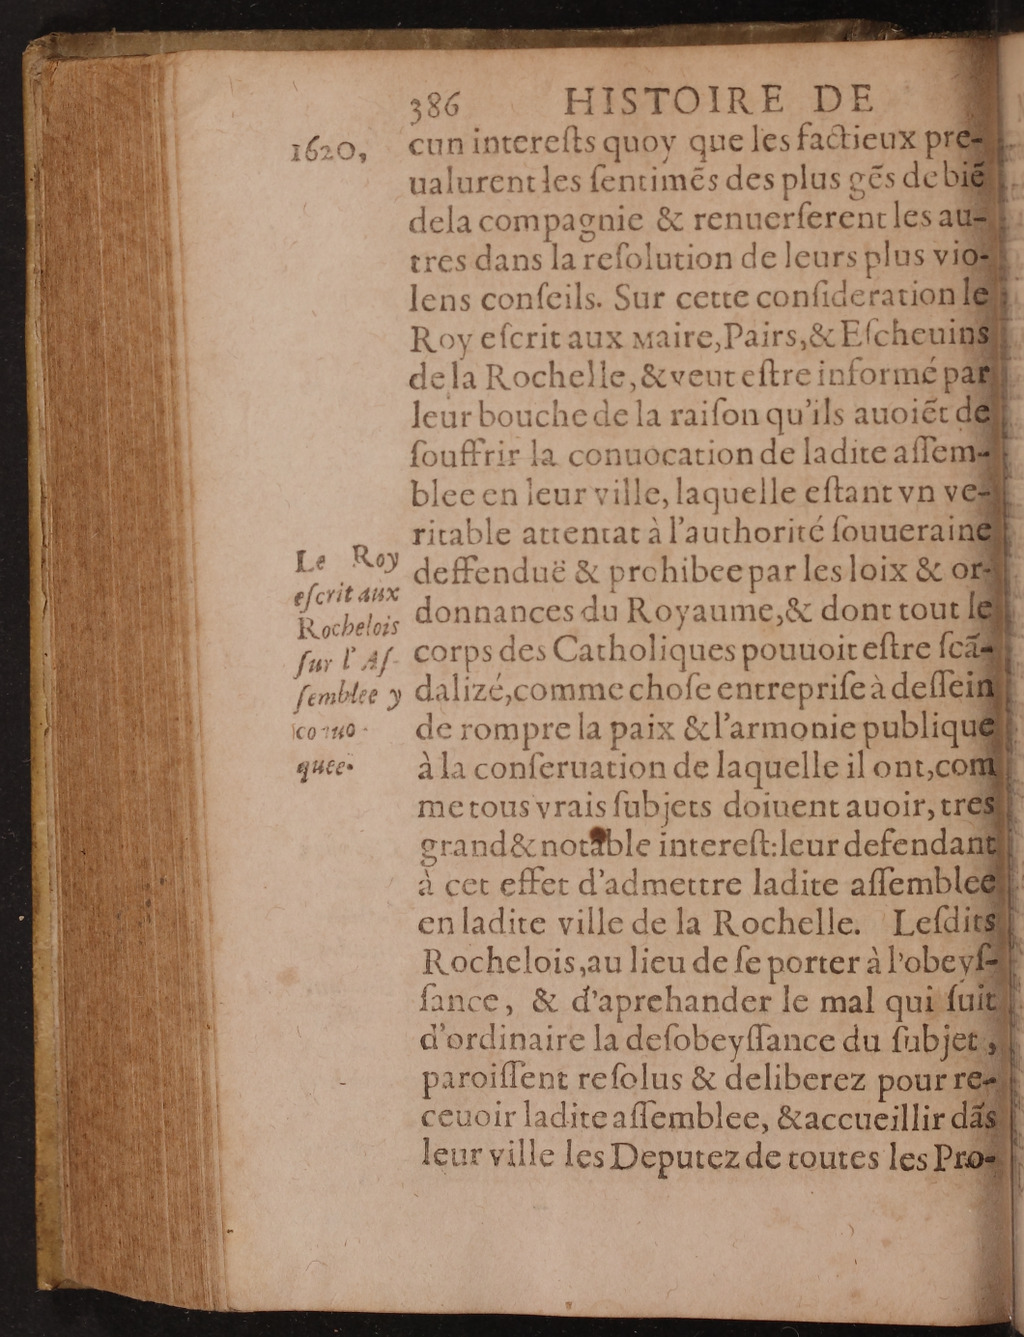 386 HISTOIRE DE
1620,
cun intereſts quoy que les factieux pre-
ualurent les ſentimẽs des plus gẽs de biẽ
dela compagnie & renuerſerent les au-
tres dans la reſolution de leurs plus vio-
lens conſeils. Sur cette conſideration le
Roy eſcrit aux Maire, Pairs, & Eſcheuins
de la Rochelle, & veut eſtre informé par
leur bouche de la raiſon qu'ils auoiẽt de
ſouffrir la conuocation de ladite aſſem-
blee en leur ville, laquelle eſtant vn ve-
ritable attentat à l'authorité ſouueraine
deffenduë & prohibee par les loix & or-
donnances du Royaume, & dont tout le
corps des Catholiques pouuoit eſtre ſcã-
dalizé, comme choſe entrepriſe à deſſein
de rompre la paix & l'armonie publique
à la conſeruation de laquelle il ont, com
me tous vrais ſubjets doiuent auoir, tres
grand & notable intereſt: leur defendant
à cet effet d'admettre ladite aſſemblee
en ladite ville de la Rochelle. Leſdits
Rochelois, au lieu de ſe porter à l'obeyſ-
ſance, & d'aprehander le mal qui ſuit
d'ordinaire la deſobeyſſance du ſubjet,
paroiſſent reſolus & deliberez pour re-
ceuoir ladite aſſemblee, & accueillir dãs
leur ville les Deputez de toutes les Pro-
Le Roy
eſcrit aux
Rochelois
ſur l' Aſ-
ſemblee y
conuo-
quee.